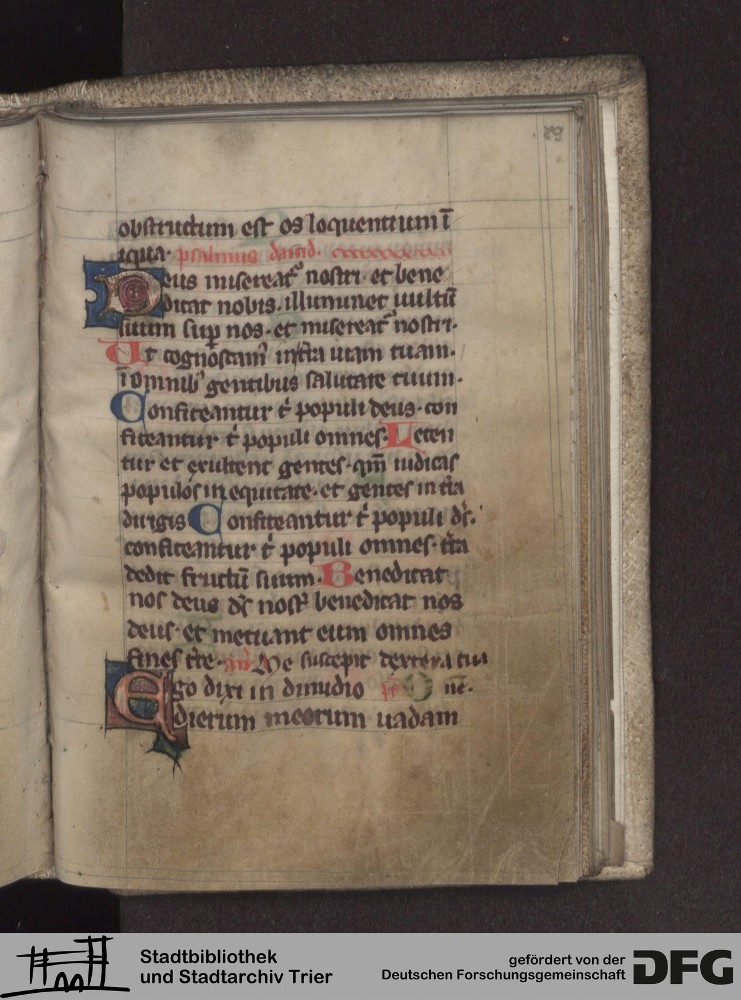 89
obstructum est os loquentium ī
iqua. psalmus dauid.
Deus misereatᷣ nostri et bene
dicat nobis. illuminet uultū
suum suꝑ nos. et misereatᷣ nostri.
Ut cognoscam᷒ in tr̄a uiam tuam.
ī omnib᷒ gentibus salutare tuum.
Confiteantur t̄ populi deus. con
fiteantur t̄ populi omnes. Leten
tur et exultent gentes. qm̄ iudicas
populos in equitate. et gentes in tr̄a
dirigis Confiteantur t̄ populi ds̄.
confiteantur t̄ populi omnes. tr̄a
dedit fructū suum. Benedicat
nos deus ds̄ nosᷣ benedicat nos
deus. et metuant eum omnes
fines tr̄e. an̄ Me suscepit dextera tua
Ego dixi in dimidio ps̄ O ne.
dierum meorum uadam
Stadtbibliothek
und Stadtarchiv Trier
gefördert von der
Deutschen Forschungsgemeinschaft
DFG